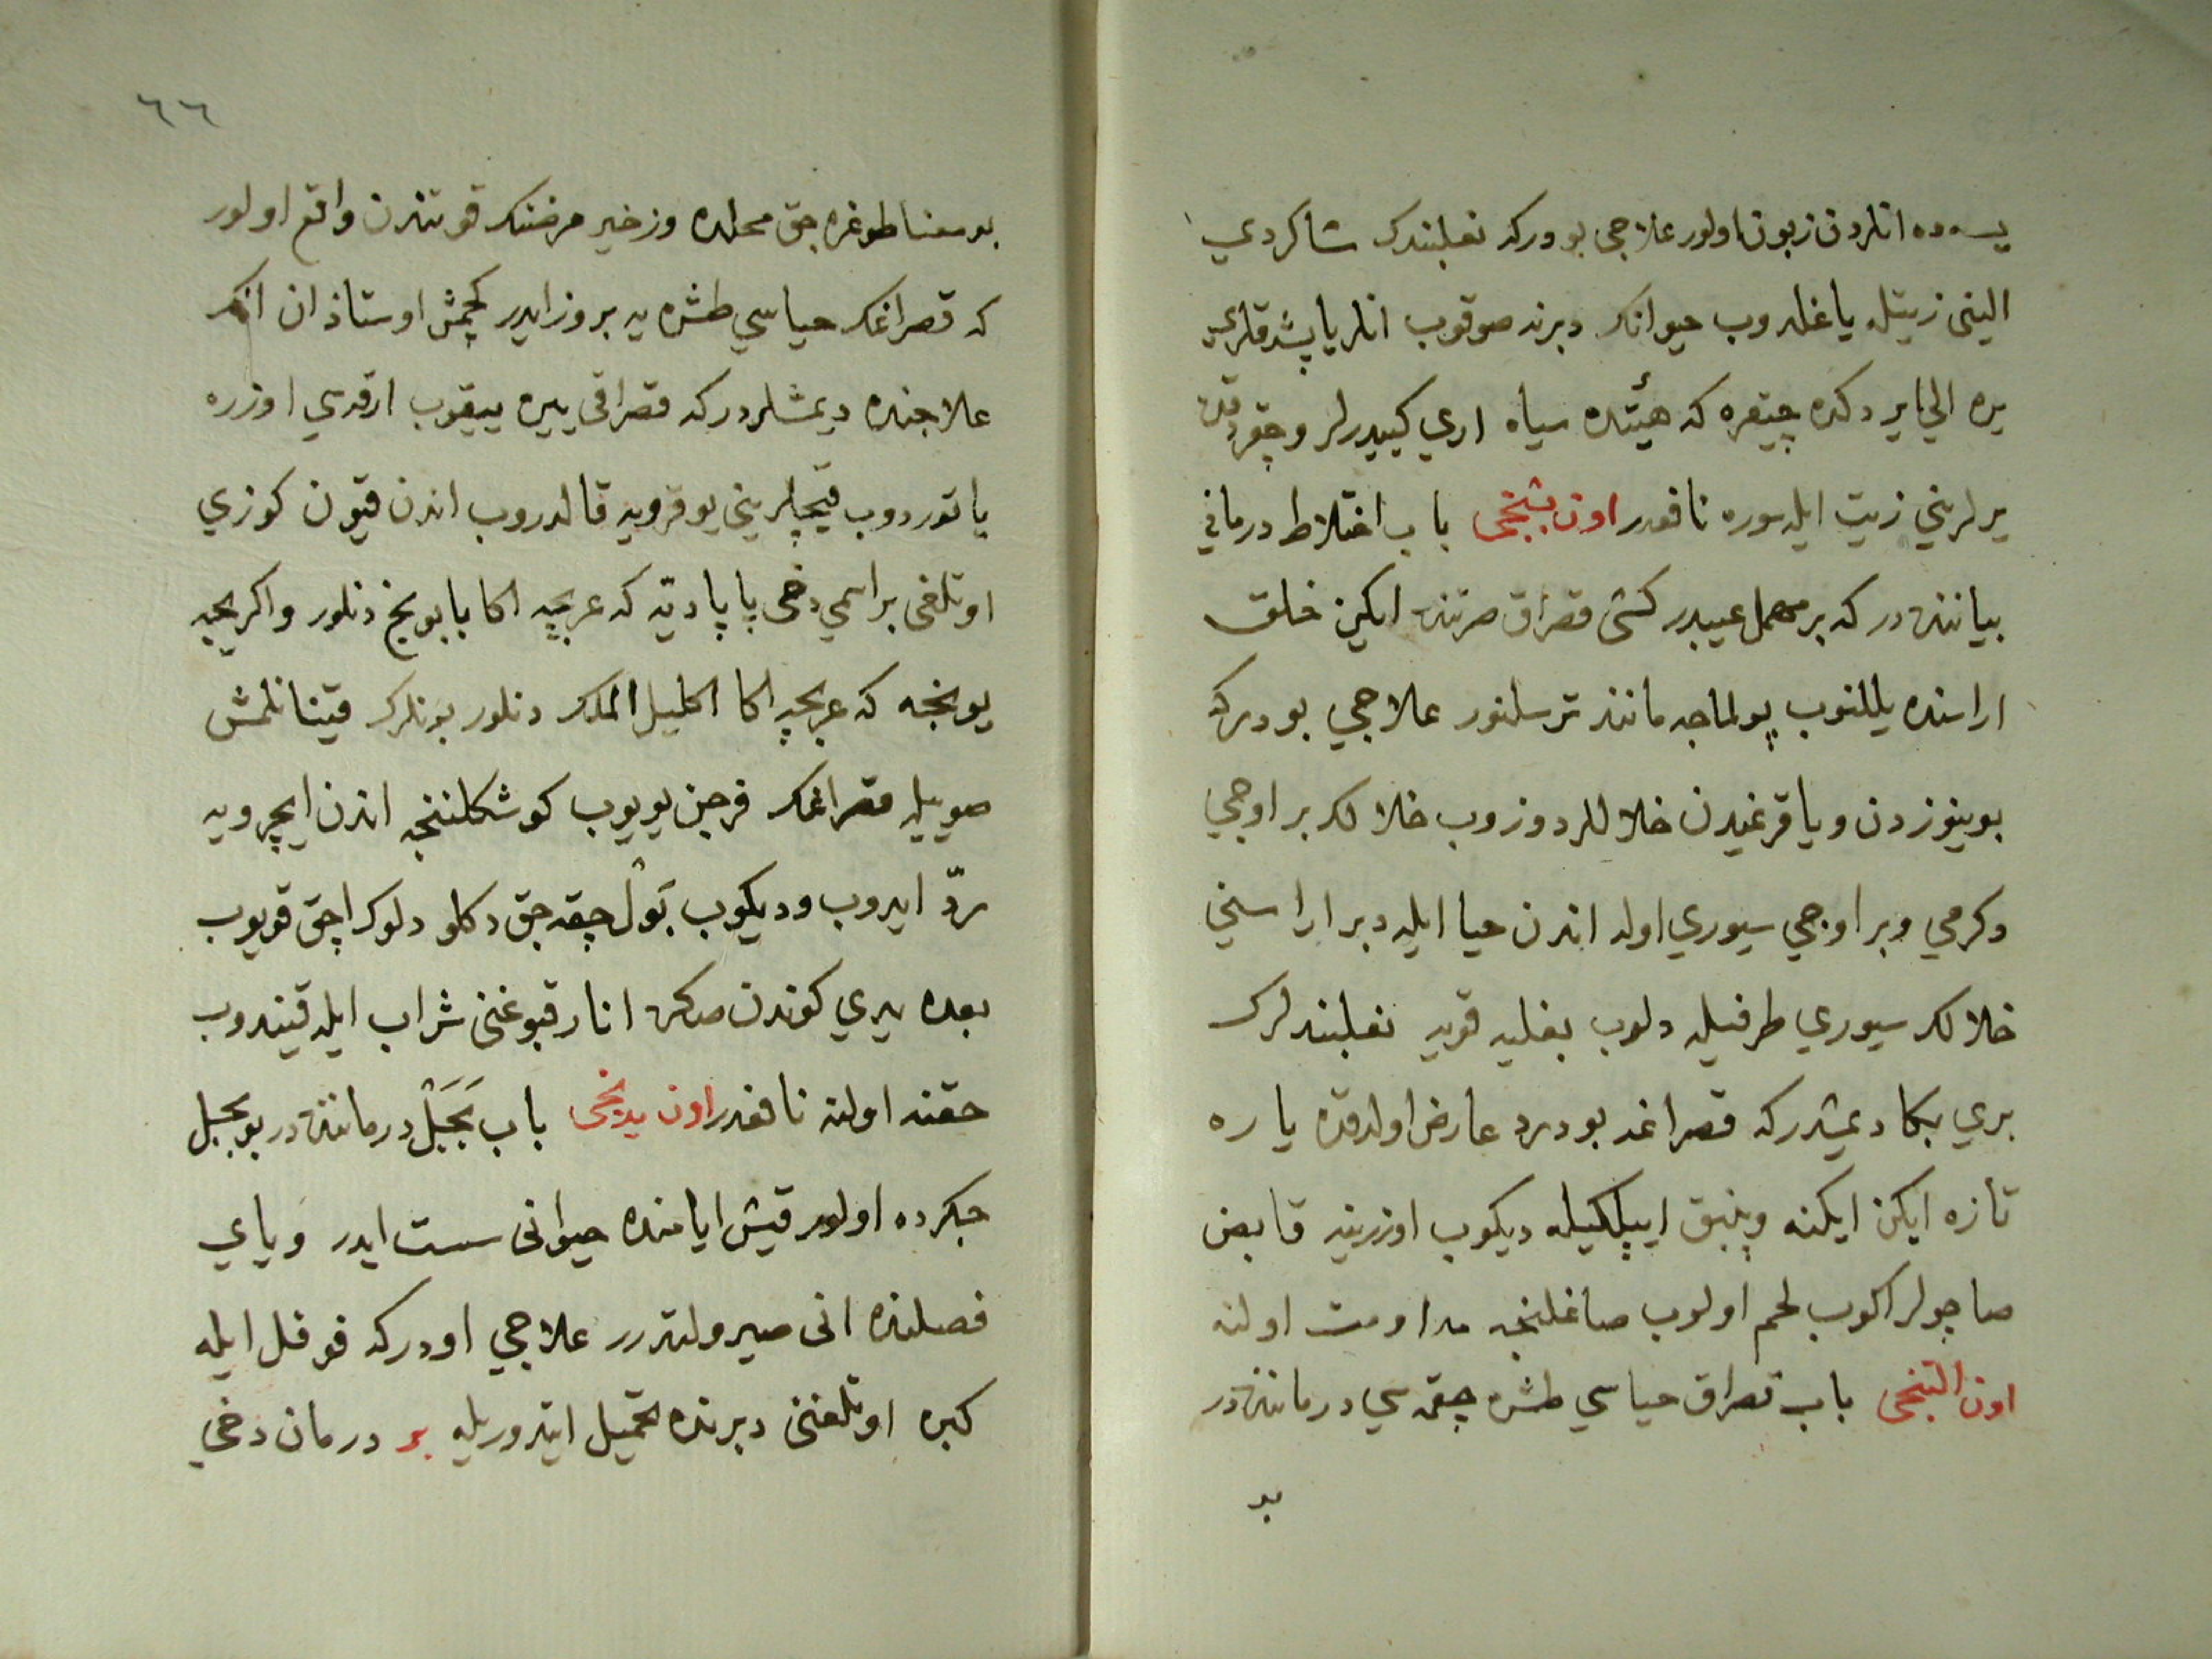 يسه ده انلردن زبون اولور علاجی بو درکه نعلبندک شاکردي
الینی زیتله یاغلدوب حیوانک دبرنه صوقوب انلر یاپشدقلري
یره الی ایردکده چیقره که هیئتده سیاه اري کیبیدرلر وچقردقدن
یرلریني زیت ایله سوره نافعدر اون بشنجی باب اختلاط درماني
بیاننده در که بر مهمل عیبدر کشی قصراق صرتنده ایکن خلق
اراسنده یللنوب پولماجه مانند ترسلنور علاجي بو درکه
بوینوزدن ویا قرغیدن خلاللر دوزوب خلالک بر اوجي
دکرمي وبر اوجي سیوري اوله اندن حیا ایله دبر اراسني
خلالک سیوري طرفیله دلوب بغلیه قویه نعلبندلرک
بري بکا دیمشدر که قصراغه بو درد عارض اولدقده یاره
تازه ایکن ایکنه وپنبق ایپلکیله دیکوب اوزرینه قابض
صاچولر اکوب لحم اولوب صاغلنجه مداومت اولنه
اون التنجی باب قصراق حیاسي طشره چقمه سي درماننده در
بو
٦٦
بو معنا طوغره جق محلده وزخیر مرضنک قوتندن واقع اولور
که قصراغک حیاسي طشره یه بروز ایدر کچمش اوستاذان انک
علاجنده دیمشلردر که قصراقی یره ییقوب ارقه سي اوزره
یاتوردوب قیچلریني یوقرویه قالدروب اندن قیون کوزي
اوتلغی بر اسمي دخی پاپادیه که عربجه اکا بابونج دنلور واکریجه
یونجه که عربجه اکا اکلیل الملک دنلور بونلرک قیناتلمش
صوییله قصراغک فرجن یویوب کوشکلننجه اندن ایچرویه
ردّ ایدوب ودیکوب بَوْل چقه جق دکلو دلوک اچق قویوب
بعده یدي کوندن صکره انار قبوغنی شراب ایله قیندوب
حقنه اولنه نافعدر اون یدنجی باب بَجَبَلْ درماننده در بو بجبل
جکرده اولور قیش ایامنده حیوانی سست ایدر ویاي
فصلنده انی صیرولتدرر علاجي اودرکه فوفل ایله
کبره اوتلغنی دبرنده تحمیل ایتدوریله بر درمان دخي